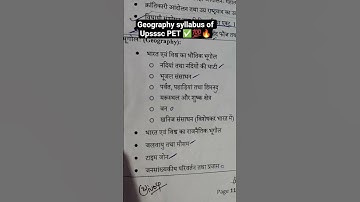 क्रांतिकारी आंदोलन तथा उग्र राष्ट्रवाद का
Geography syllabus of
Upsssc PET ✅💯🔥
भूगोल (Geography):
• भारत एवं विश्व का भौतिक भूगोल
○ नदियां तथा नदियों की घाटी
○ भूजल संसाधन
○ पर्वत, पहाड़ियां तथा हिमनद
○ मरूस्थल और शुष्क क्षेत्र
○ वन
○ खनिज संसाधन (विशेषकर भारत में)
• भारत एवं विश्व का राजनैतिक भूगोल
• जलवायु तथा मौसम
• टाइम जोन
• जनसांख्यिकीय परिवर्तन तथा प्रवास
Page 11